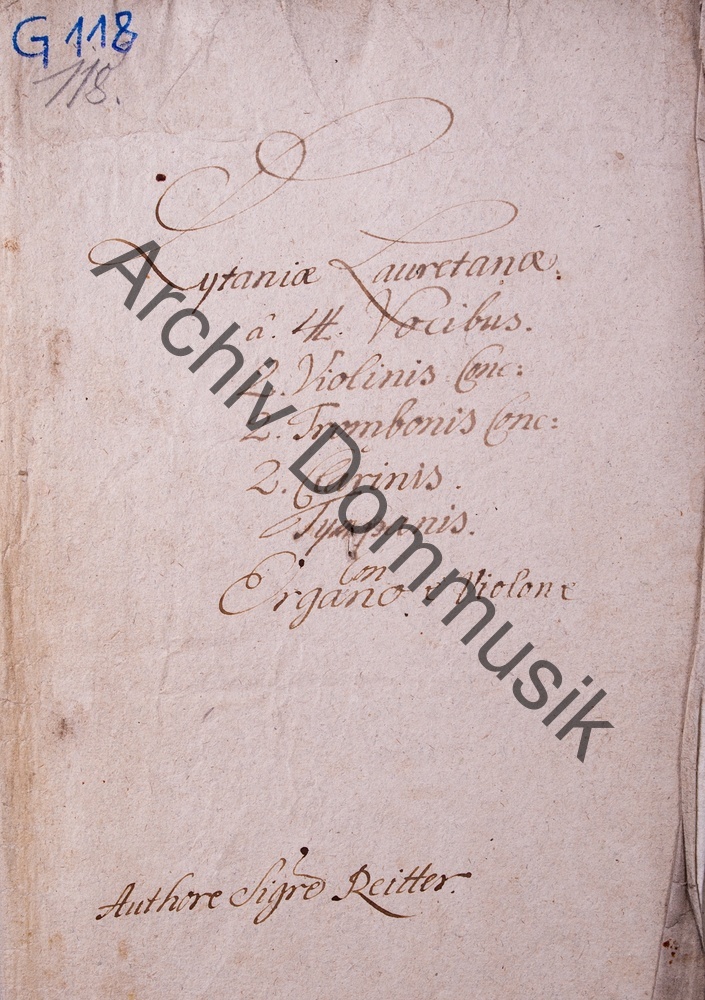 G 118
118.
Lytaniæ Lauretanæ.
â. 4. Vocibus.
2. Violinis Conc:
2. Trombonis Conc:
2. Clarinis.
Tympanis.
Con
Organo e Violone
Authore Sigre Reitter.
Archiv Dommusik